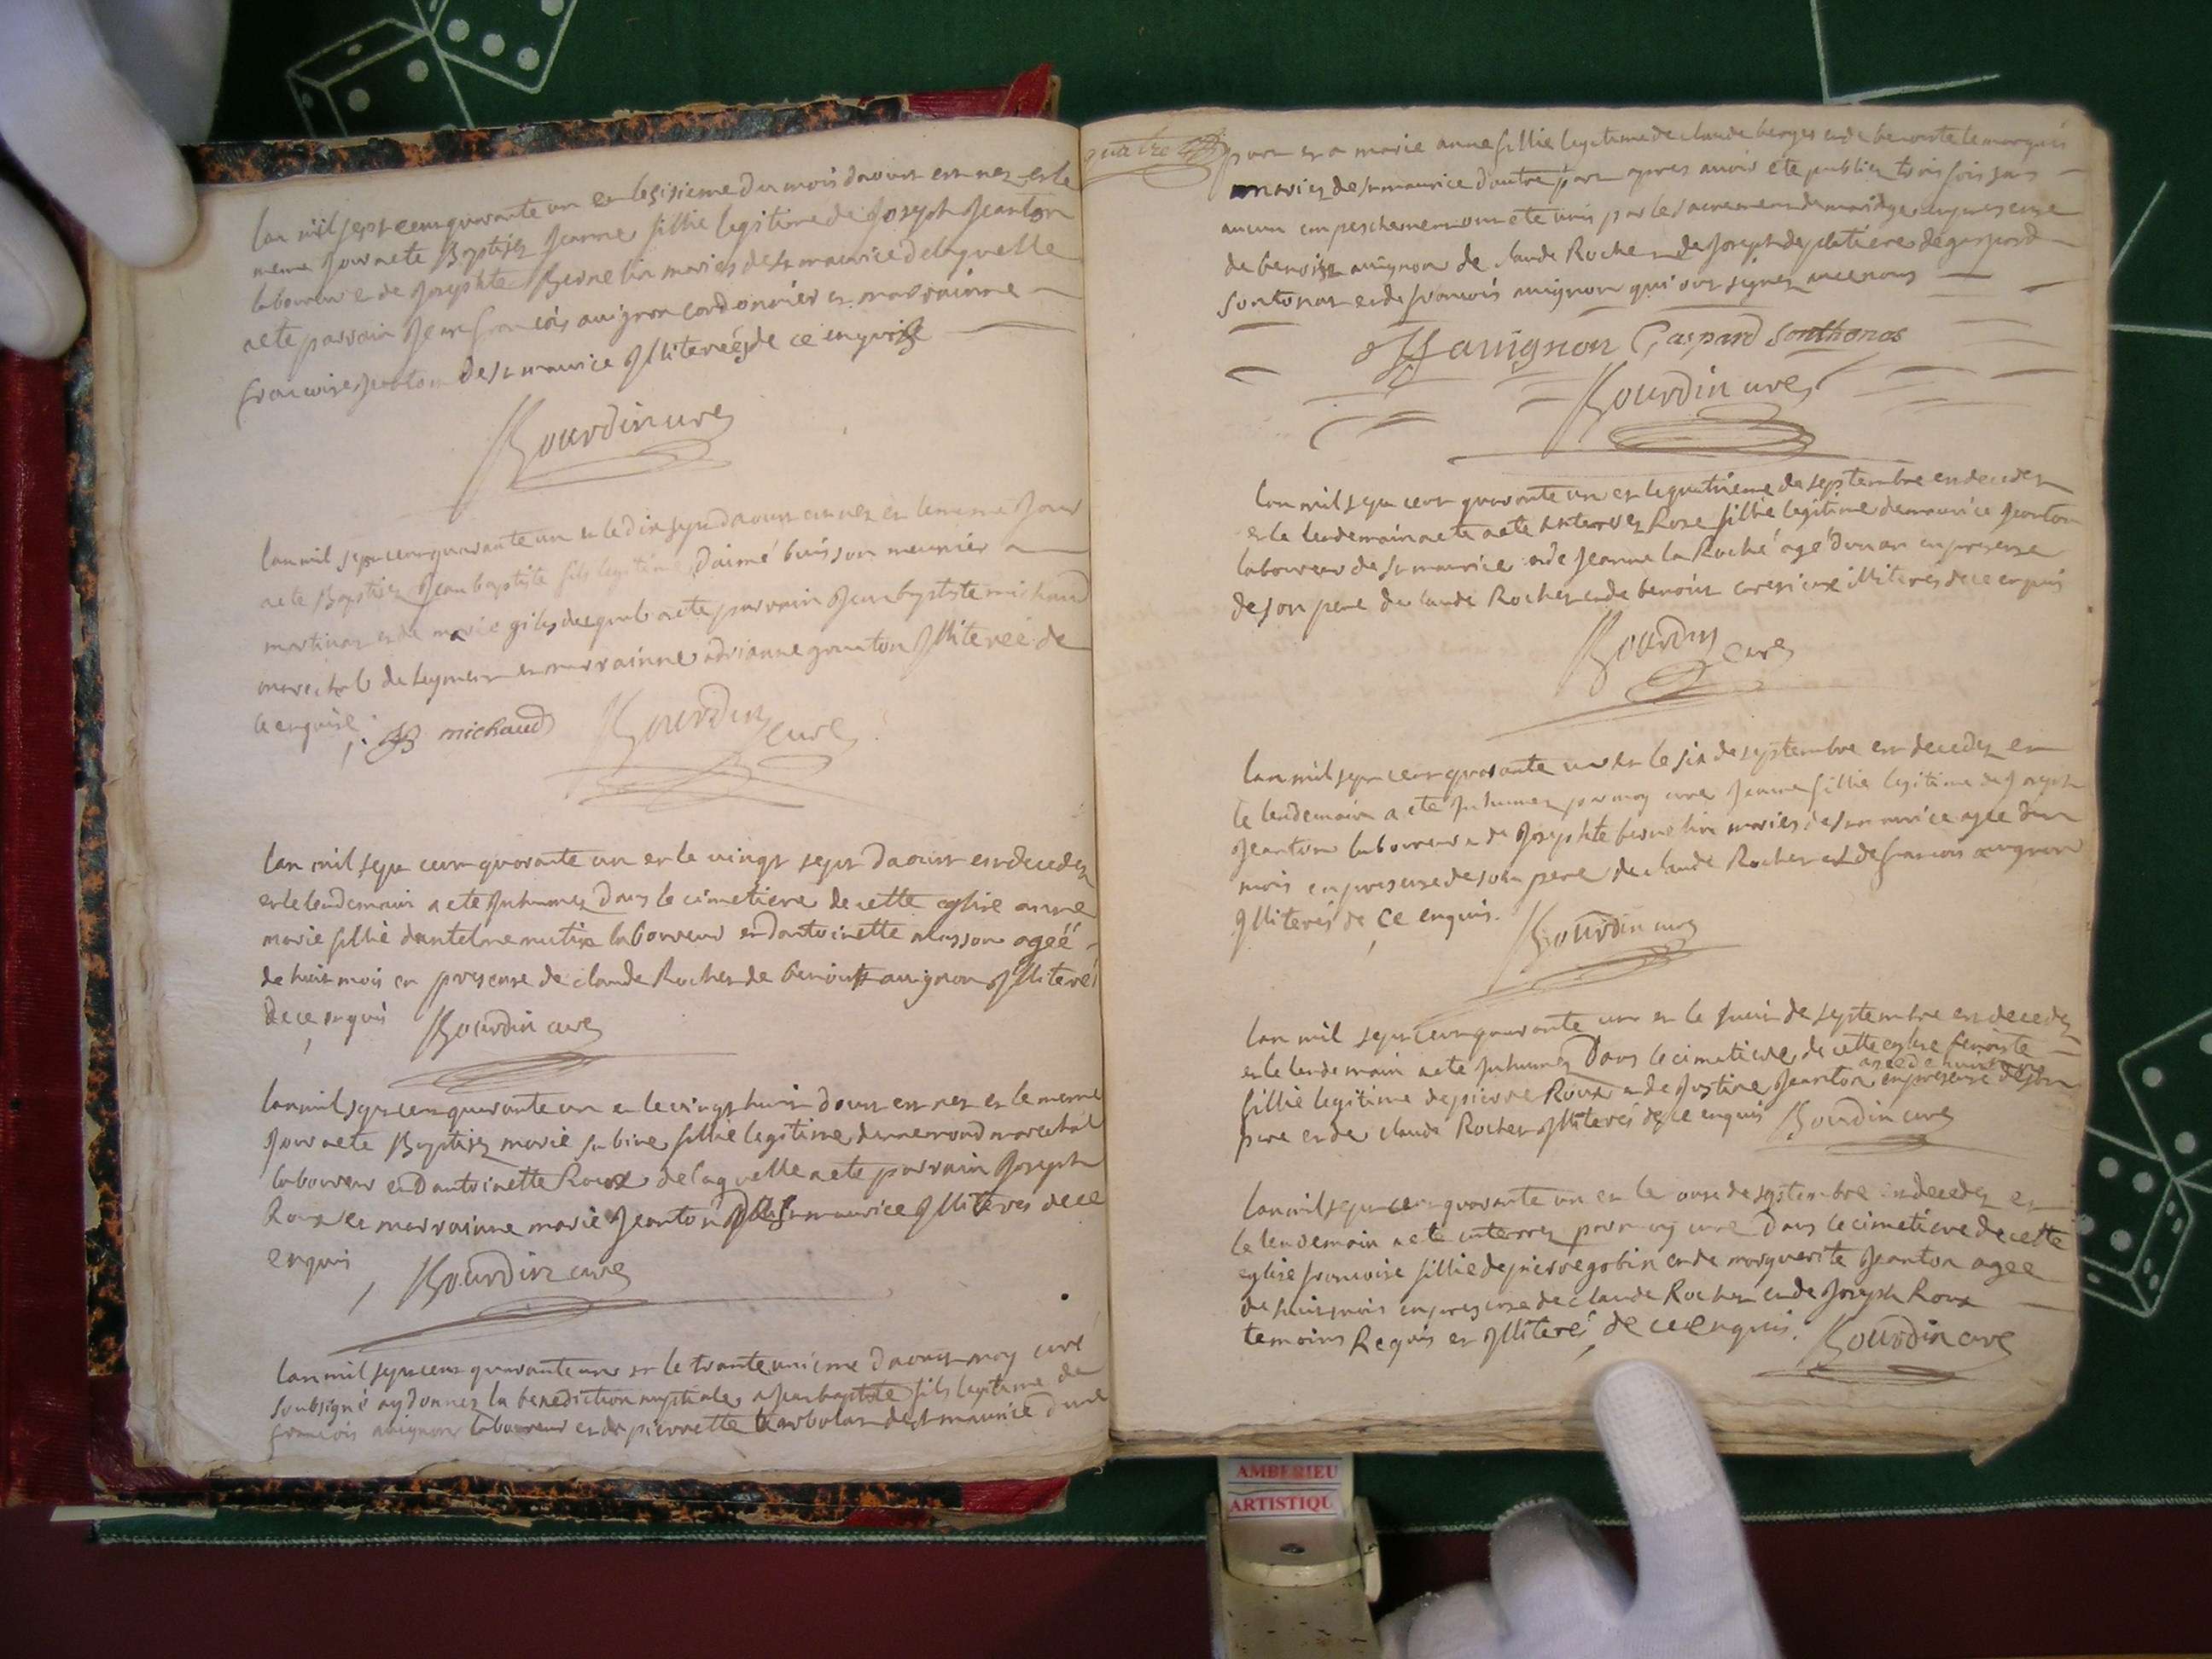 lan mil sept cent quarante un et le sisieme du mois daoust est nez et le
meme jour a ete Baptisez Jeanne fillie legitime de Joseph Jeanton
laboureur et de Josephte Bernelin mariez de st maurice de laquelle
a ete parrain Jean francois auignon cordonnier et marrainne
francoise Jeanton de st maurice Jlliterées de ce enquise
Bourdin curé
lan mil sept cent quarante un et le dix sept daoust est nez et le meme jour
a ete Baptisez Jean baptiste fils legitime daimé buisson meunier a
martinaz et de marie gilis duquel a ete parrain Jean baptiste michaud
marechal de leyment et marrainne adrianne granton Jlliterée de
ce enquise JB michaud Bourdin curé
lan mil sept cent quarante un et le vingt sept daoust est decedez
et le lendemain a ete Jnhumez dans le cimetiere de cette eglise anne
marie fillie dantelme mutin laboureur et dantoinette masson ageé
de huit mois en presense de claude Rochet de benoit auignon Jlliterés
de ce enquis Bourdin curé
lan mil sept cent quarante un et le vingt huit doust est nez et le meme
jour a ete Baptisez marie sabine fillie legitime danemond marechal
laboureur et dantoinette Roux de laquelle a ete parrain Joseph
Roux et marrainne marie Jeanton de st maurice Jlliterés de ce
enquis Bourdin curé
lan mil sept cent quarante un et le trante unieme daoust moy curé
soubsigné ay donnez la benediction nuptiale a Jean baptiste fils legitime de
francois auignon laboureur et de pierrette de st maurice dune
quatre
part et a marie anne fillie legitime de claude berger et de benoite le marquis
mariez de st maurice dautre part apres auoir ete publiez trois fois sans
aucun empeschement ont ete unis par le sacrement de mariage en presense
de benoist auignon de claude Rochet de Joseph de platiere de gaspard
sontonas et de francois auignon qui ont signez auec nous
JF auignon Gaspard Sonthonas
Bourdin curé
lan mil sept cent quarante un et le quatrieme de septembre est decedez
et le lendemain a ete a ete enterrez Rose fillie legitime de maurice Jeanton
laboureur de st maurice et de Jeanne la Roche agé dun an en presense
de son pere de claude Rochet et de benoit illiterés de ce enquis
Bourdin curé
lan mil sept cent quarante un et le six de septembre est decedez et
le lendemain a ete Jnhumez par moy curé Jeanne fillie legitime de Joseph
Jeanton laboureur et de Josephte bernelin mariez de st maurice agee dun
mois en presense de son pere de claude Rochet et de francois auignon
Jlliterés de ce enquis. Bourdin curé
lan mil sept cent quarante un et le huit de septembre est decedez
et le lendemain a ete Jnhumez Dans le cimetiere de cette eglise benoite
fillie legitime de pierre Roux et de Justine Jeanton agee de huit en presense de son
pere et de claude Rochet Jlliterés de ce enquis Bourdin curé
lan mil sept cent quarante un et le onze de septembre est decedez et
le lendemain a ete enterrez par moy curé Dans le cimetiere de cette
eglise francoise fillie de pierre gobin et de marguerite Jeanton agee
de huit mois en presense de claude Rochet et de Joseph Roux
temoins Requis et Jlliterés de ce enquis. Bourdin curé
AMBERIEU
ARTISTIQU